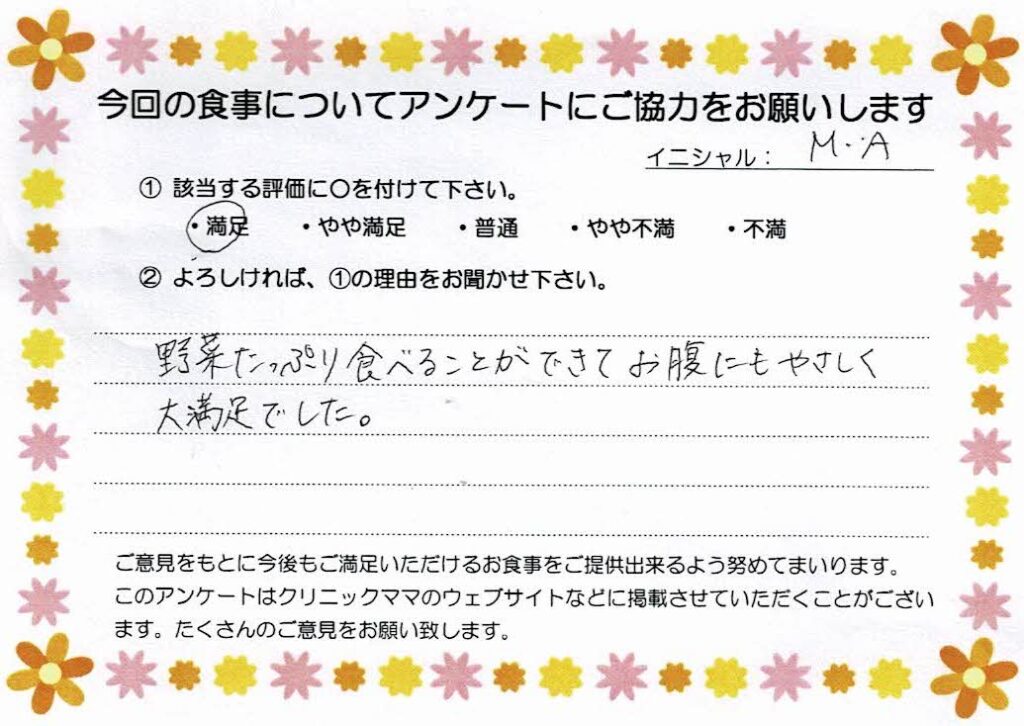 今回の食事についてアンケートにご協力をお願いします
イニシャル： M・A
① 該当する評価に〇を付けて下さい。
・満足 ・やや満足 ・普通 ・やや不満 ・不満
② よろしければ、①の理由をお聞かせ下さい。
野菜たっぷり食べることができてお腹にもやさしく
大満足でした。
ご意見をもとに今後もご満足いただけるお食事をご提供出来るよう努めてまいります。
このアンケートはクリニックママのウェブサイトなどに掲載させていただくことがござい
ます。たくさんのご意見をお願い致します。